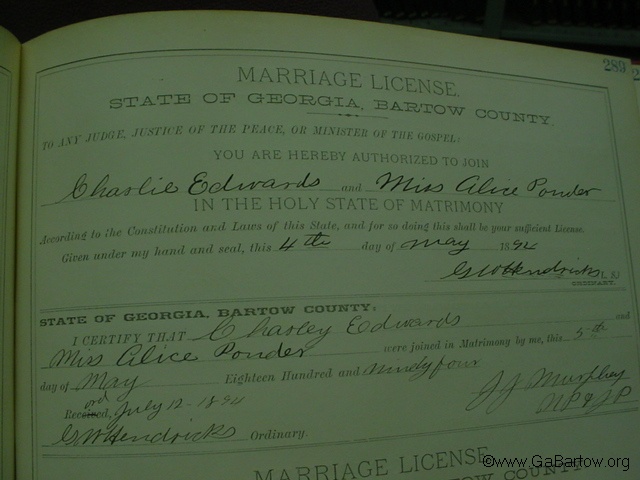 289
2
MARRIAGE LICENSE.
STATE OF GEORGIA, BARTOW COUNTY.
TO ANY JUDGE, JUSTICE OF THE PEACE, OR MINISTER OF THE GOSPEL:
YOU ARE HEREBY AUTHORIZED TO JOIN
Charlie Edwards and Miss Alice Ponder
IN THE HOLY STATE OF MATRIMONY
According to the Constitution and Laws of this State, and for so doing this shall be your sufficient License.
Given under my hand and seal, this 4th day of May 1894
G W Hendricks L. S.
ORDINARY.
STATE OF GEORGIA, BARTOW COUNTY:
I CERTIFY THAT Charley Edwards and
Miss Alice Ponder were joined in Matrimony by me, this 5th
day of May Eighteen Hundred and Nindy four
J J Murphey
NP & JP
ord
Received, July 12-1894
G W Hendricks Ordinary.
MARRIAGE LICENSE.
COUNTY.
©www.GaBartow.org